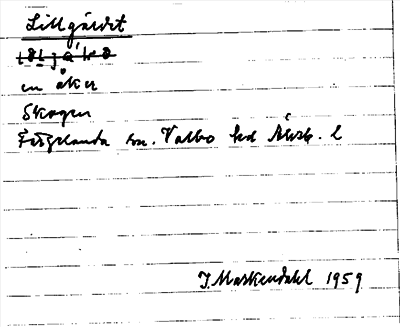 Lillgärdet
en åker
Skogen
Färgelanda sn. Valbo hd Älvsb. l
J. Markendahl 1959